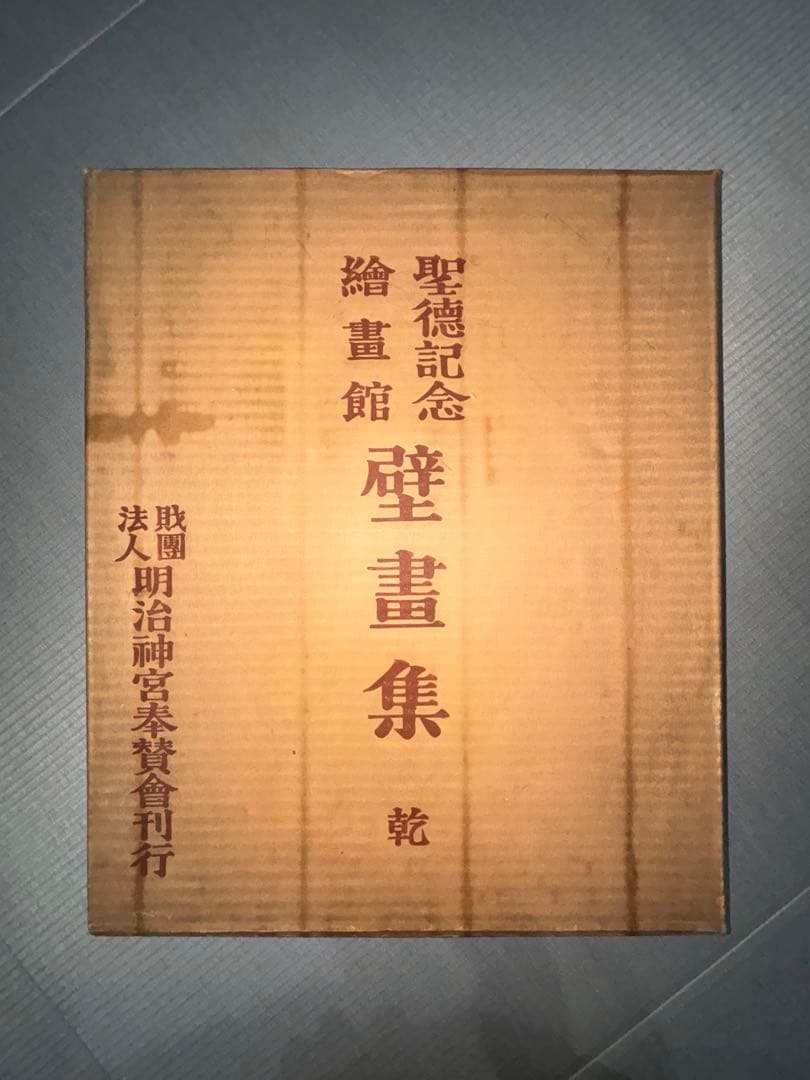 聖德記念
繪畫館
壁畫集 乾
財團
法人
明治神宮奉賛會刊行